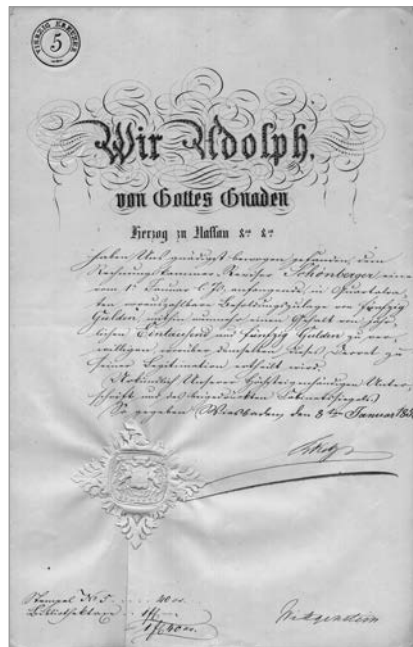 VIERZIG KREUZER
5
Wir Adolph,
von Gottes Gnaden
Herzog zu Nassau &c &c
haben Uns gnädigst bewogen gefunden, dem
Rechnungskammer-Revisor Schönberger eine
vom 1n Januar l. Js. anfangende, in Quartalra-
ten vorauszahlbare Besoldungszulage von fünfzig
Gulden, mithin nunmehr einen Gehalt von jähr-
lichen Eintausend und fünfzig Gulden zu ver-
willigen, worüber demselben dieses Decret zu
seiner Legitimation ertheilt wird.
Urkundlich Unserer Höchsteigenhändigen Unter-
schrift und des beigedrückten Cabinetssiegels.
So gegeben Wiesbaden, den 3ten Januar
Adolph
Stempel No 5 40 xr.
Bibliothektaxe 1 f.
1 f 40 xr.
Wittgenstein